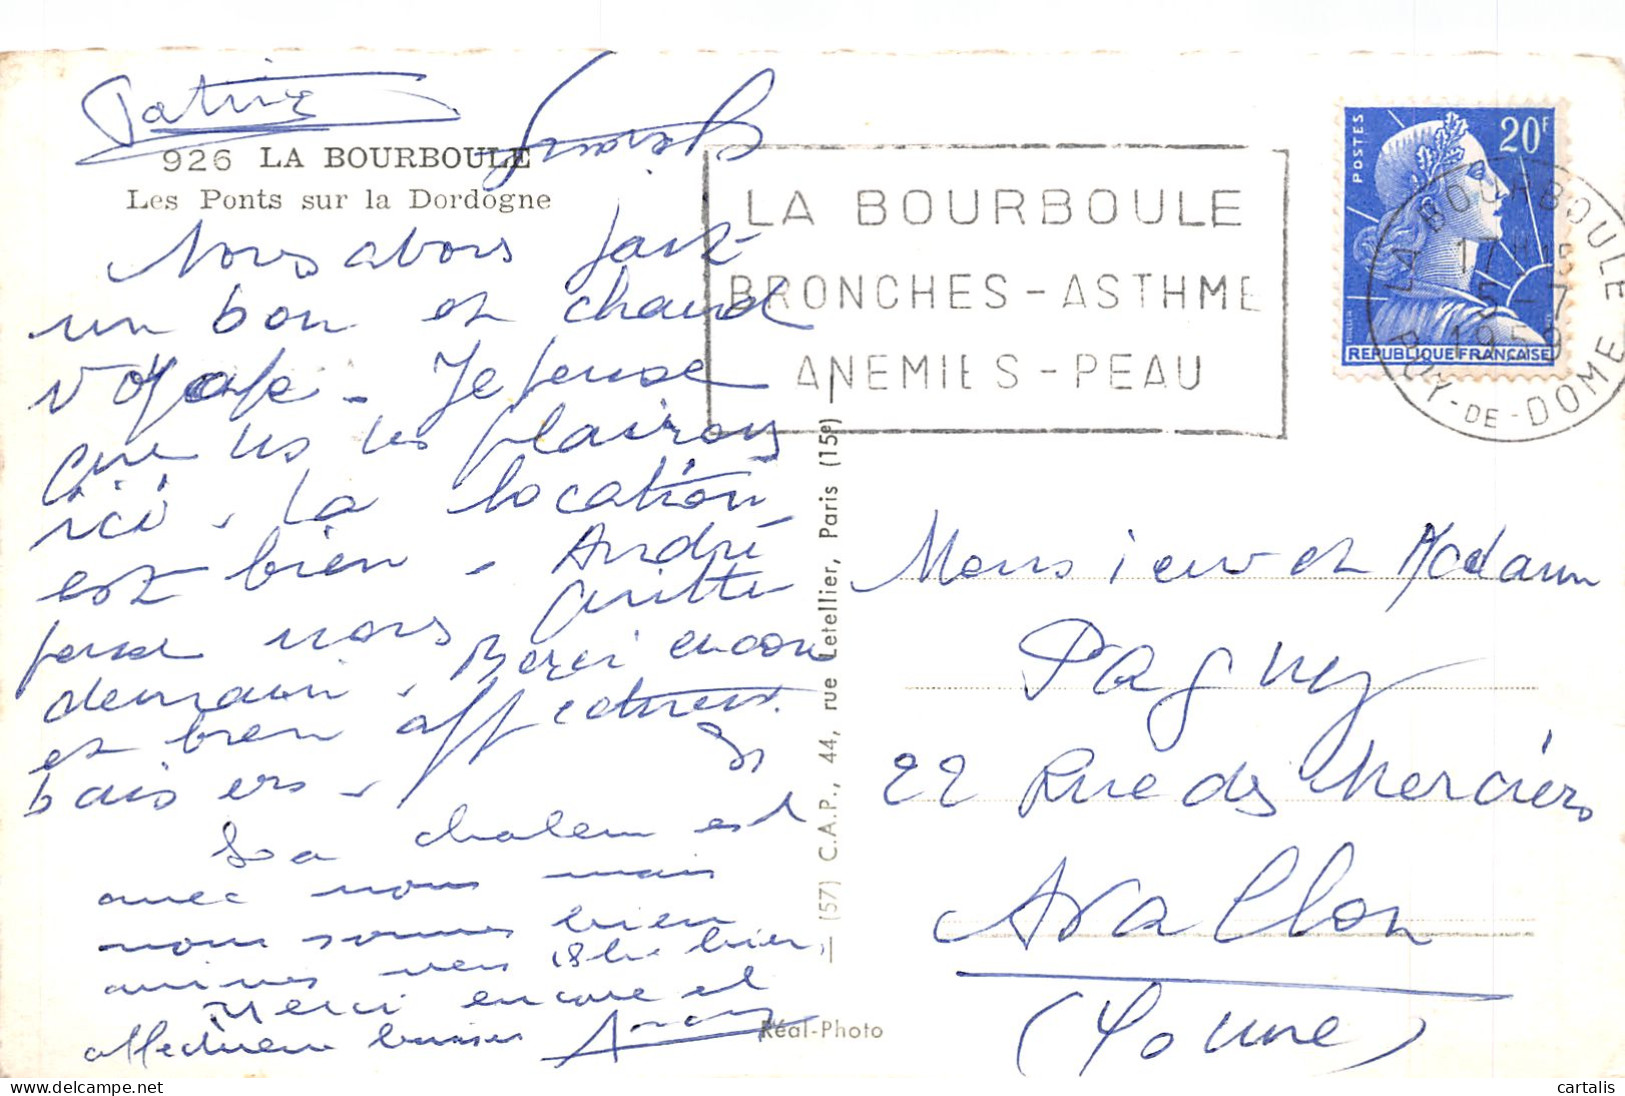 Patrice
926 LA BOURBOULE
Les Ponts sur la Dordogne
Nous avons fait
un bon et chaud
voyage - Je pense
que ns ns plairons
ici - La location
est bien - André
pense nous quitter
demain - Merci encore
et bien affectueux
baisers -
La chaleur est
avec nous mais
nous sommes bien
arrivés vers 18h hier
Merci encore et
affectueux baisers
LA BOURBOULE
BRONCHES - ASTHME
ANEMIES - PEAU
POSTES
20F
REPUBLIQUE FRANÇAISE
LA BOURBOULE
17H
5 - 7
1959
PUY - DE - DOME
(57) C.A.P., 44, rue Letellier, Paris (15e)
Réal-Photo
Monsieur et Madame
Pagny
22 Rue des Merciers
Avallon
(Yonne)
cartalis